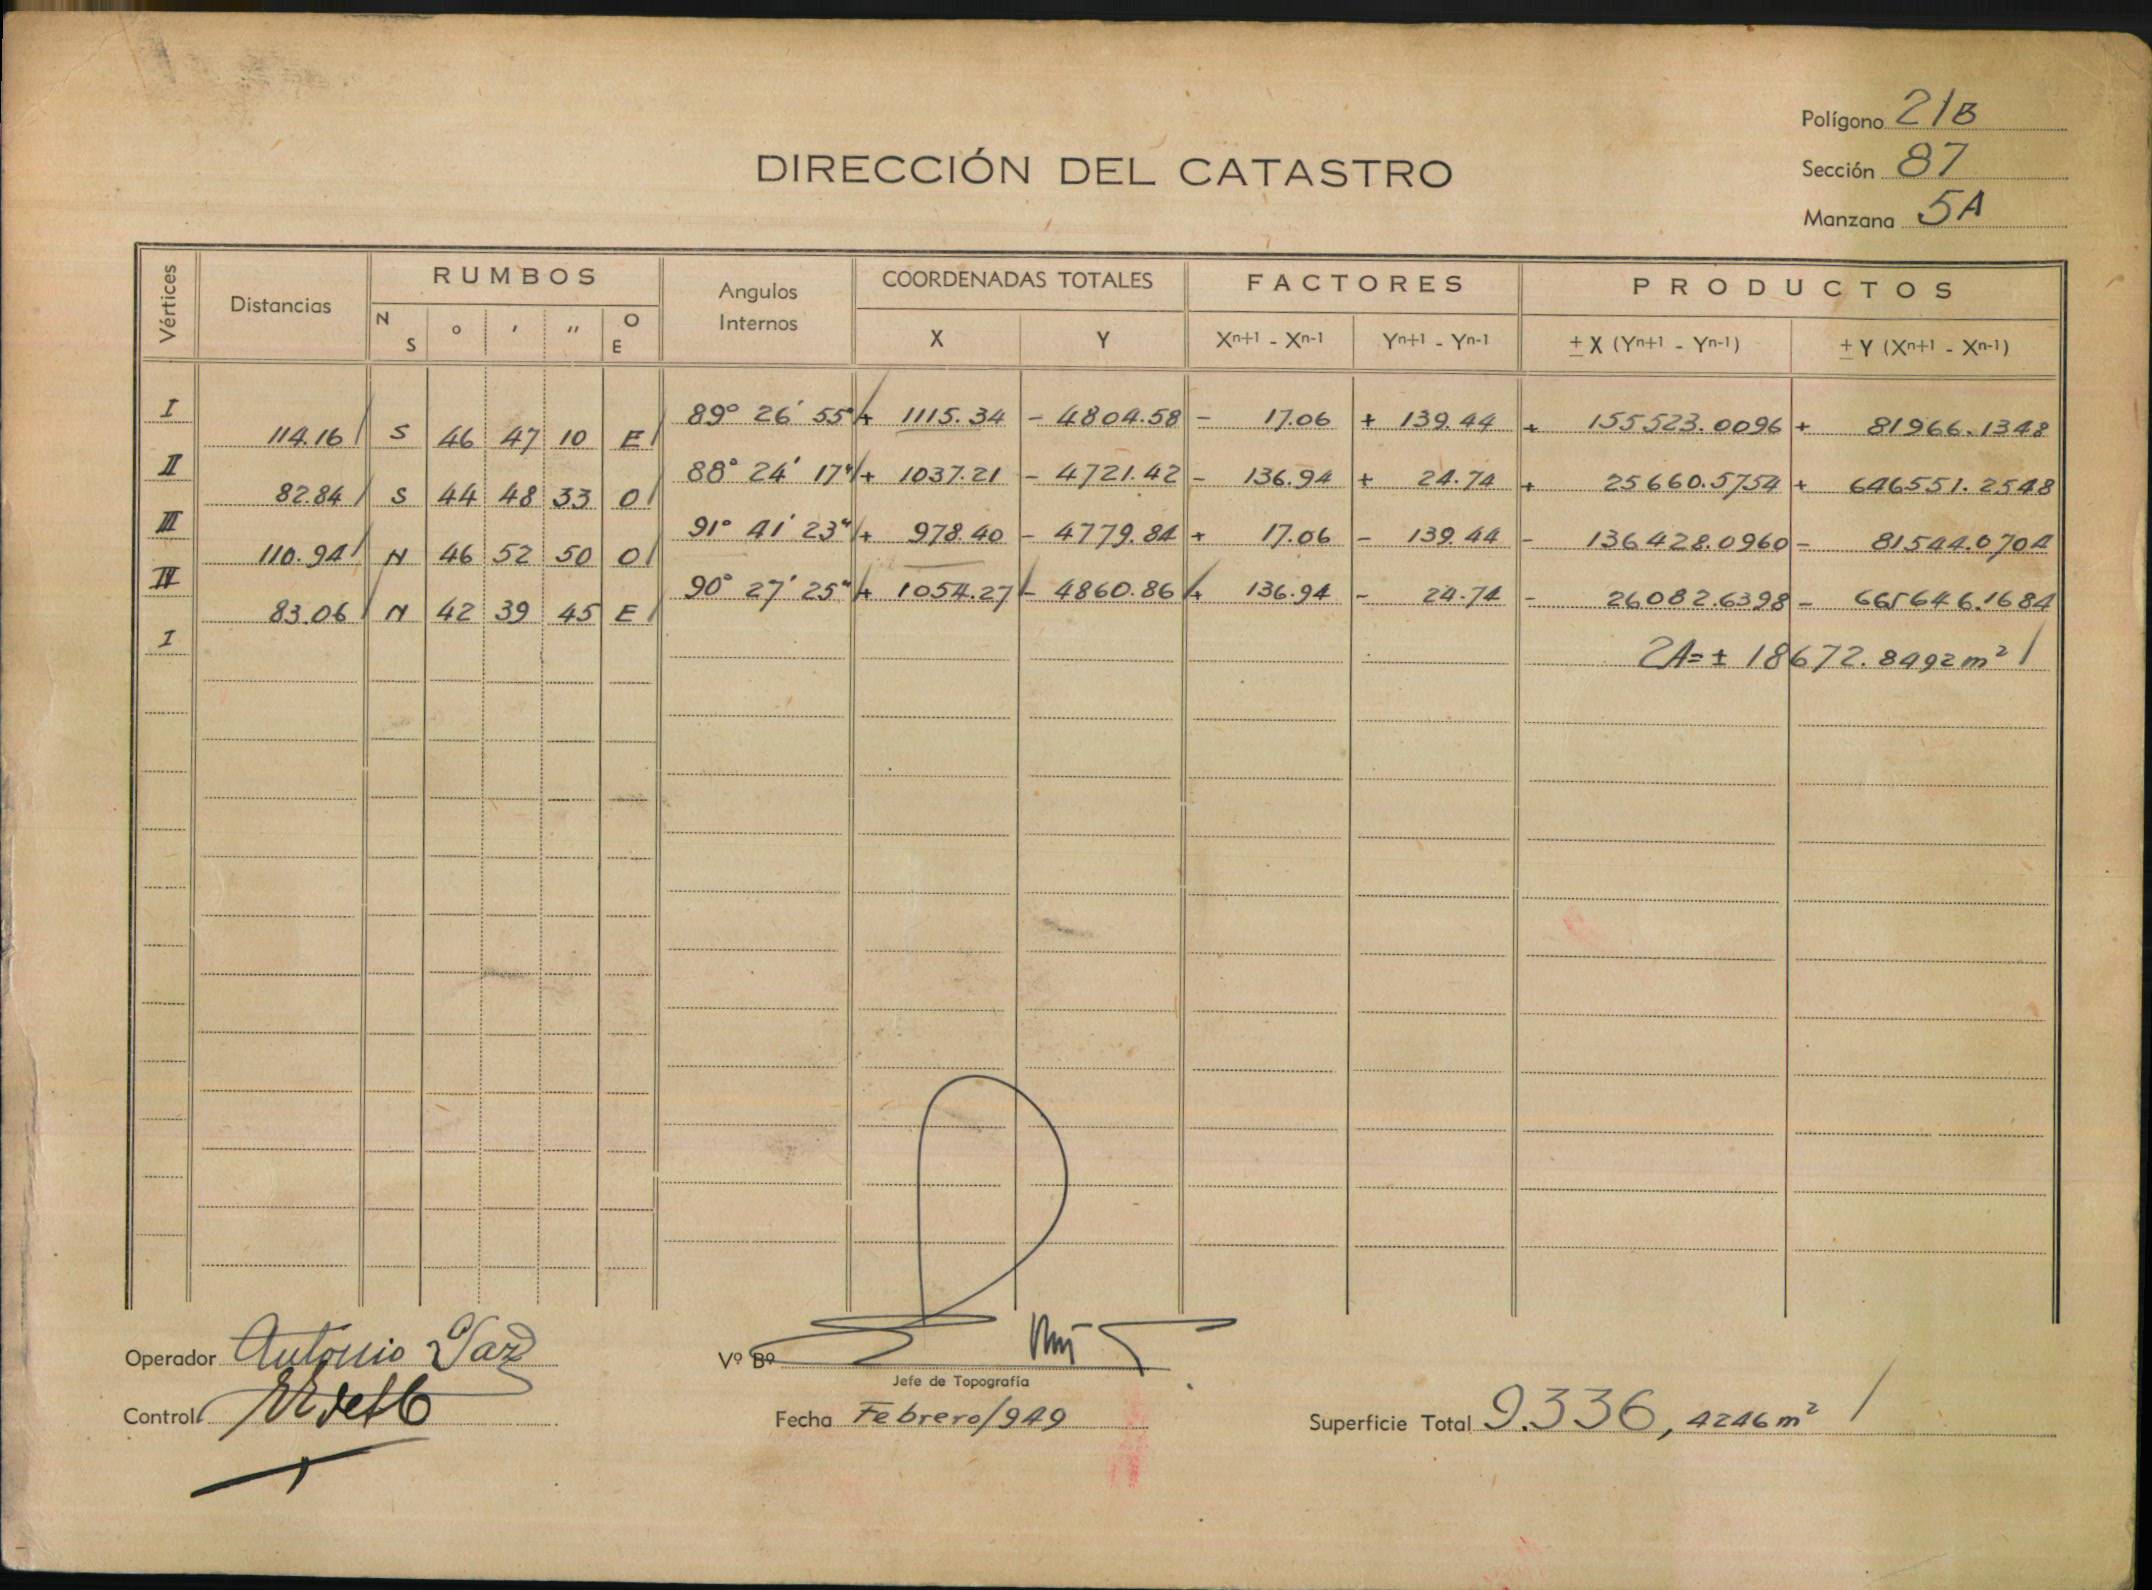 Polígono 21B
DIRECCIÓN DEL CATASTRO
Sección 87
Manzana 5A
Vértices Distancias RUMBOS Angulos Internos COORDENADAS TOTALES FACTORES PRODUCTOS
N S o ' '' O E X Y Xn+1 - Xn-1 Yn+1 - Yn-1 ± X (Yn+1 - Yn-1) ± Y (Xn+1 - Xn-1)
I 89° 26' 55" + 1115.34 - 4804.58 - 17.06 + 139.44 + 155523.0096 + 81966.1348
114.16 S 46 47 10 E
II 88° 24' 17" + 1037.21 - 4721.42 - 136.94 + 24.74 + 25660.5754 + 646551.2548
82.84 S 44 48 33 O
III 91° 41' 23" + 978.40 - 4779.84 + 17.06 - 139.44 - 136428.0960 - 81544.0704
110.94 N 46 52 50 O
IV 90° 27' 25" + 1054.27 - 4860.86 + 136.94 - 24.74 - 26082.6398 - 665646.1684
83.06 N 42 39 45 E
I 2A = ± 18672.8492 m²
Operador Antonio Vº Bº
Jefe de Topografía
Control Fecha Febrero/949 Superficie Total 9.336,4246 m²